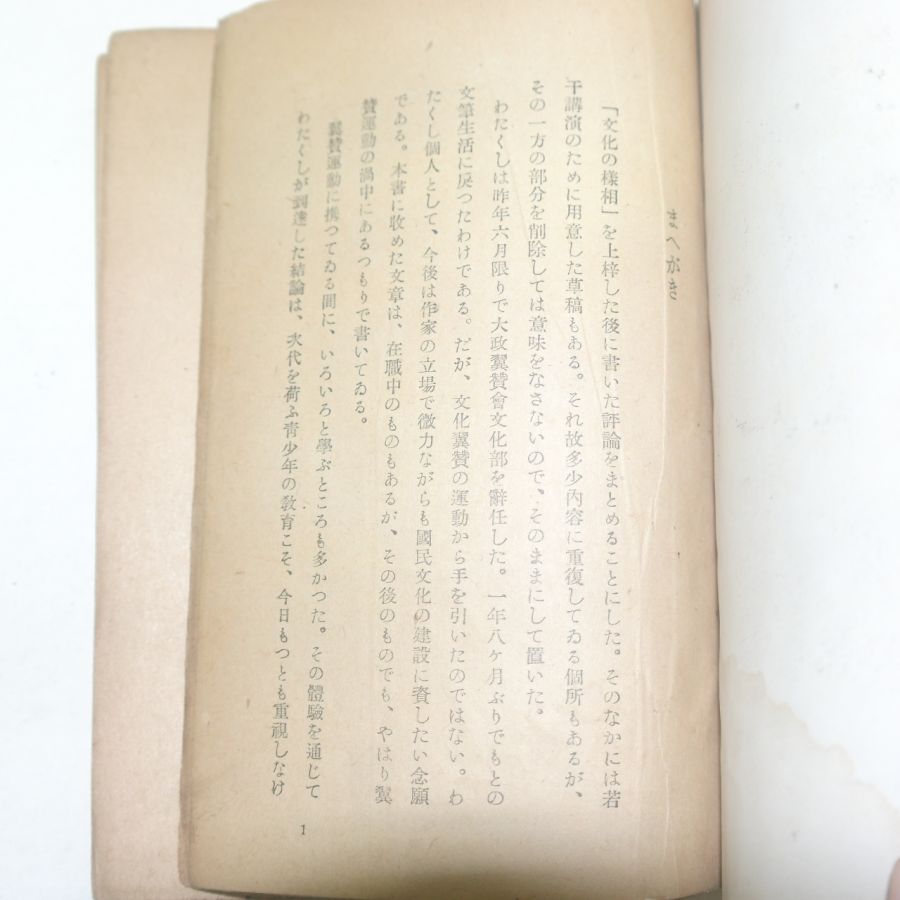 まへがき
「文化の樣相」を上梓した後に書いた評論をまとめることにした。そのなかには若
干講演のために用意した草稿もある。それ故多少內容に重復してゐる個所もあるが、
その一方の部分を削除しては意味をなさないので、そのままにして置いた。
わたくしは昨年六月限りで大政翼贊會文化部を辭任した。一年八ヶ月ぶりでもとの
文筆生活に戾つたわけである。だが、文化翼贊の運動から手を引いたのではない。わ
たくし個人として、今後は作家の立場で微力ながらも國民文化の建設に資したい念願
である。本書に收めた文章は、在職中のものもあるが、その後のものでも、やはり翼
贊運動の渦中にあるつもりで書いてゐる。
翼贊運動に携つてゐる間に、いろいろと學ぶところも多かつた。その體驗を通じて
わたくしが到達した結論は、次代を荷ふ靑少年の敎育こそ、今日もつとも重視しなけ
1